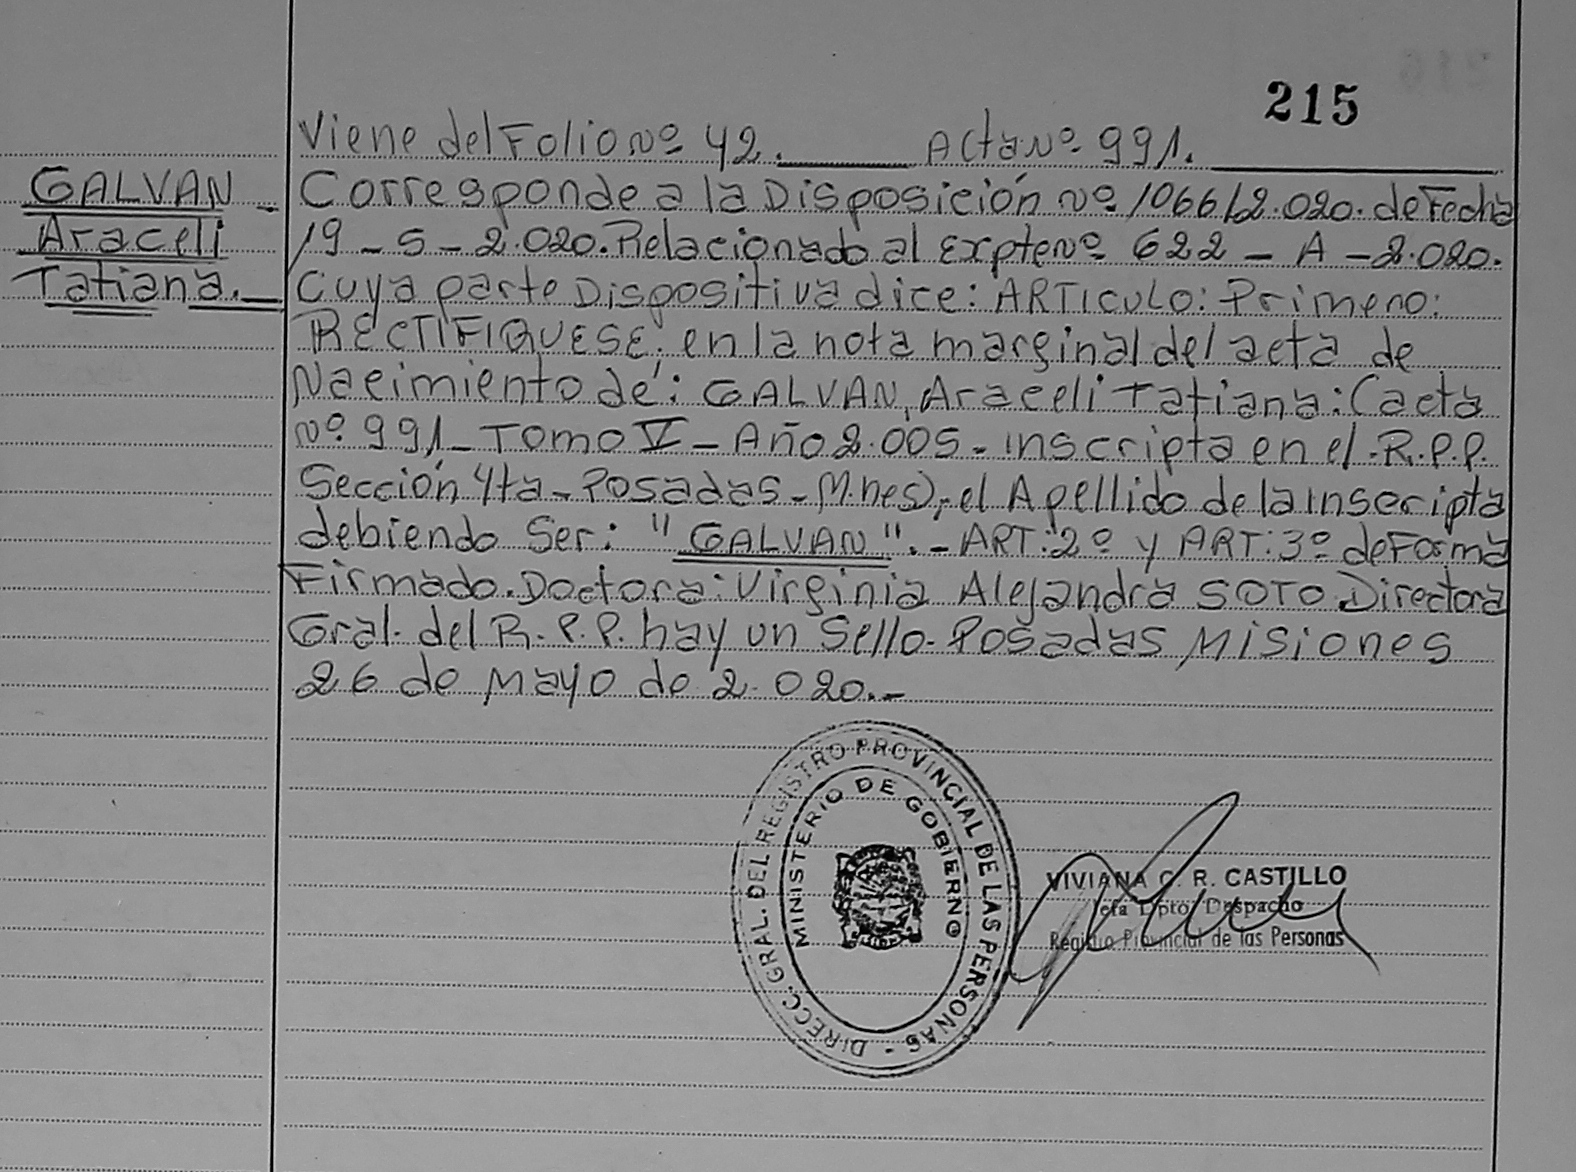 215
Viene del Folio Nº 42. Acta Nº 991.
GALVAN
Araceli
Tatiana.
Corresponde a la Disposición Nº 1066/2.020. de Fecha
19-5-2.020. Relacionado al Expte Nº 622-A-2.020.
Cuya parte Dispositiva dice: ARTICULO: Primero:
RECTIFIQUESE: en la nota marginal del acta de
Nacimiento de: GALVAN, Araceli Tatiana: (acta
Nº 991-Tomo V-Año 2.005-inscripta en el R.P.P.
Sección 4ta-Posadas-M.nes), el Apellido de la inscripta
debiendo Ser: "GALVAN".- ART: 2º y ART: 3º de Forma
Firmado. Doctora: Virginia Alejandra SOTO Directora
Gral. del R.P.P. hay un Sello. Posadas Misiones
26 de Mayo de 2.020.-
DIRECC. GRAL. DEL REGISTRO PROVINCIAL DE LAS PERSONAS -
MINISTERIO DE GOBIERNO
VIVIANA G. R. CASTILLO
Jefa Dpto. Despacho
Registro Provincial de las Personas